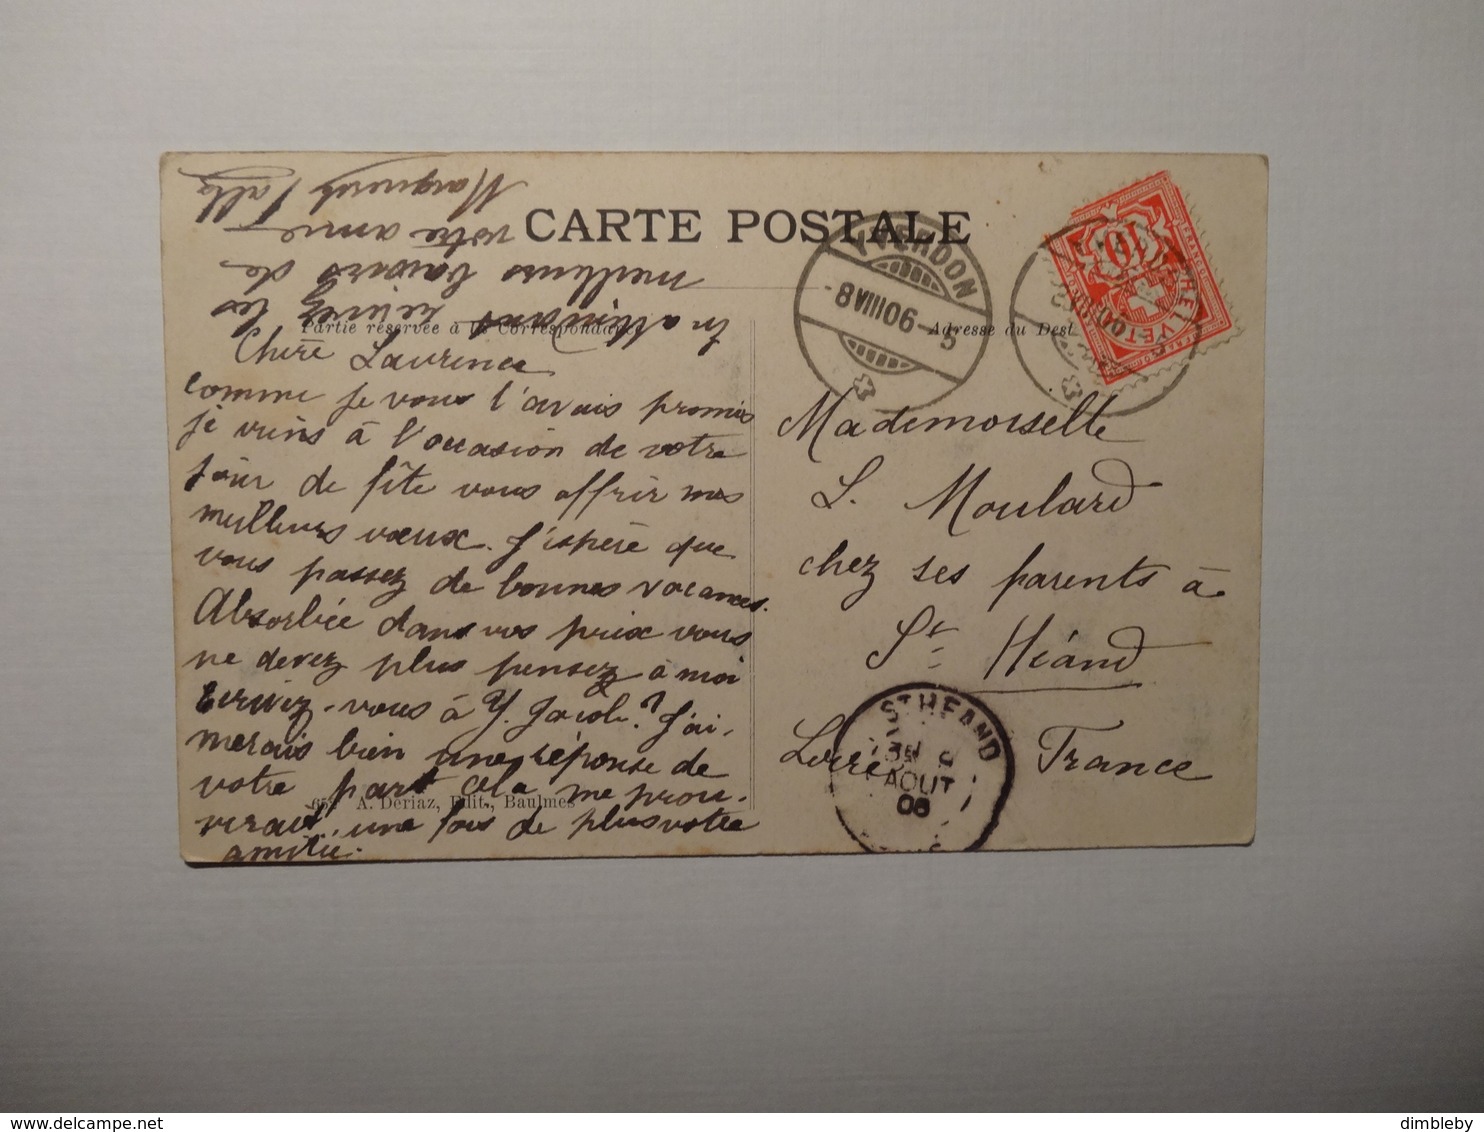 CARTE POSTALE
Partie réservée à la Correspondance
Adresse du Dest
YVERDON
-8VIII06-5
HELVETIA
10
Chère Laurence
comme je vous l'avais promis
je viens à l'occasion de votre
jour de fête vous offrir mes
meilleurs vœux. J'espère que
vous passez de bonnes vacances.
Absorbée dans vos prix vous
ne devez plus pensez à moi
Ecrivez-vous à Y. Jacob? J'ai-
merais bien une réponse de
votre part cela me prou-
verait une fois de plus votre
amitié.
En attendant recevez les
meilleurs baisers de
votre amie
Marguerite
Mademoiselle
L. Moulard
chez ses parents à
St Héand
Loire France
ST HEAND
9
AOUT
06
A. Deriaz, Edit., Baulmes
delcampe.net
dimbleby